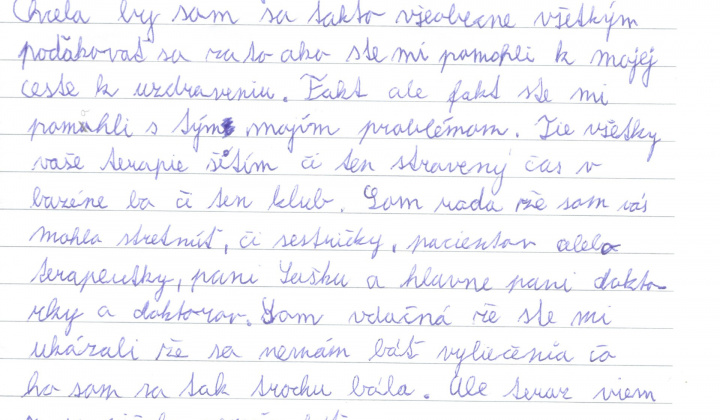 Chcela by som sa takto všeobecne všetkým
poďakovať sa za to ako ste mi pomohli k mojej
ceste k uzdraveniu. Fakt ale fakt ste mi
pomohli s tým mojím problémom. Tie všetky
vaše terapie šitím či ten stravený čas v
bazéne ba či ten klub. Som rada že som vás
mohla stretnúť, či sestričky, pacientov alebo
terapeutky, pani Sašku a hlavne pani dokto-
rky a doktorov. Som vdačná že ste mi
ukázali že sa nemám báť vyliečenia čo
ho som sa tak trochu bála. Ale teraz viem